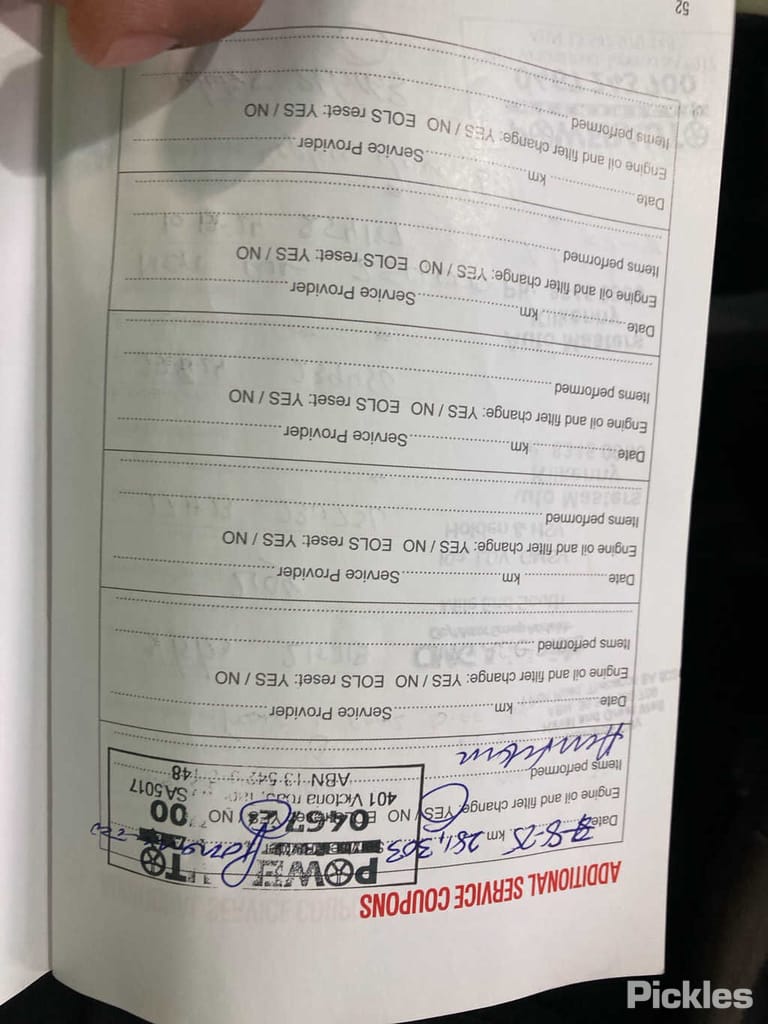 ADDITIONAL SERVICE COUPONS
Date 8-8-25 km 281,303
Engine oil and filter change: YES / NO
Items performed
POWER TO
401 Victoria road
SA 5017
ABN 13 542
Date km Service Provider
Engine oil and filter change: YES / NO EOLS reset: YES / NO
Items performed
Date km Service Provider
Engine oil and filter change: YES / NO EOLS reset: YES / NO
Items performed
Date km Service Provider
Engine oil and filter change: YES / NO EOLS reset: YES / NO
Items performed
Date km Service Provider
Engine oil and filter change: YES / NO EOLS reset: YES / NO
Items performed
Date km Service Provider
Engine oil and filter change: YES / NO EOLS reset: YES / NO
Items performed
52
Pickles